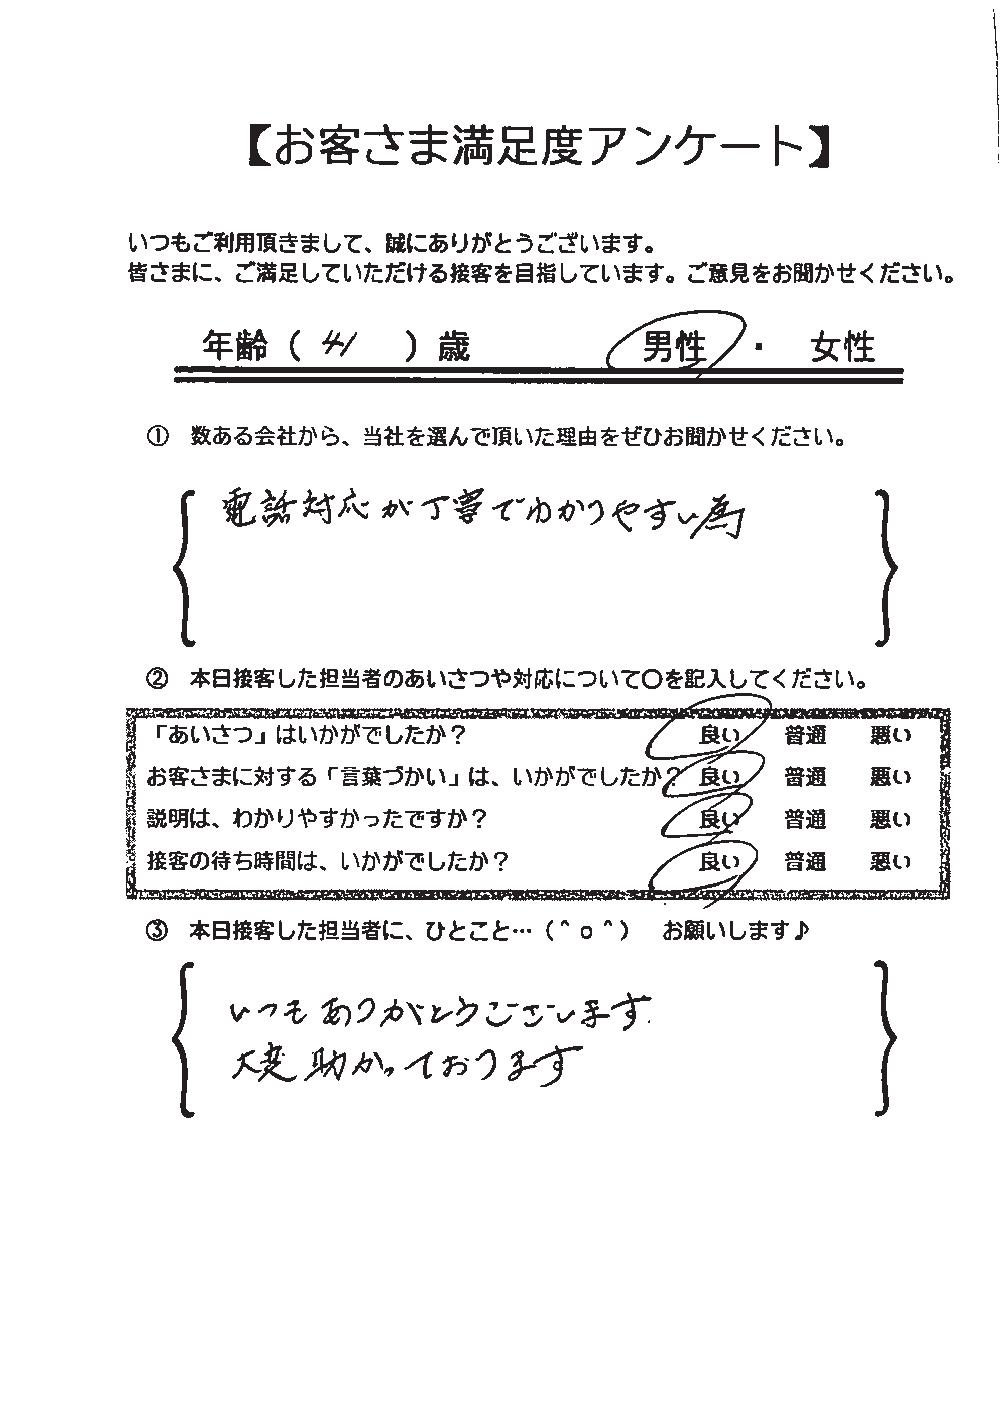 【お客さま満足度アンケート】
いつもご利用頂きまして、誠にありがとうございます。
皆さまに、ご満足していただける接客を目指しています。ご意見をお聞かせください。
年齢（ 41 ）歳 男性 ・ 女性
① 数ある会社から、当社を選んで頂いた理由をぜひお聞かせください。
電話対応が丁寧でわかりやすい為
② 本日接客した担当者のあいさつや対応について〇を記入してください。
「あいさつ」はいかがでしたか？ 良い 普通 悪い
お客さまに対する「言葉づかい」は、いかがでしたか？ 良い 普通 悪い
説明は、わかりやすかったですか？ 良い 普通 悪い
接客の待ち時間は、いかがでしたか？ 良い 普通 悪い
③ 本日接客した担当者に、ひとこと…（＾ｏ＾） お願いします♪
いつもありがとうございます
大変助かっております